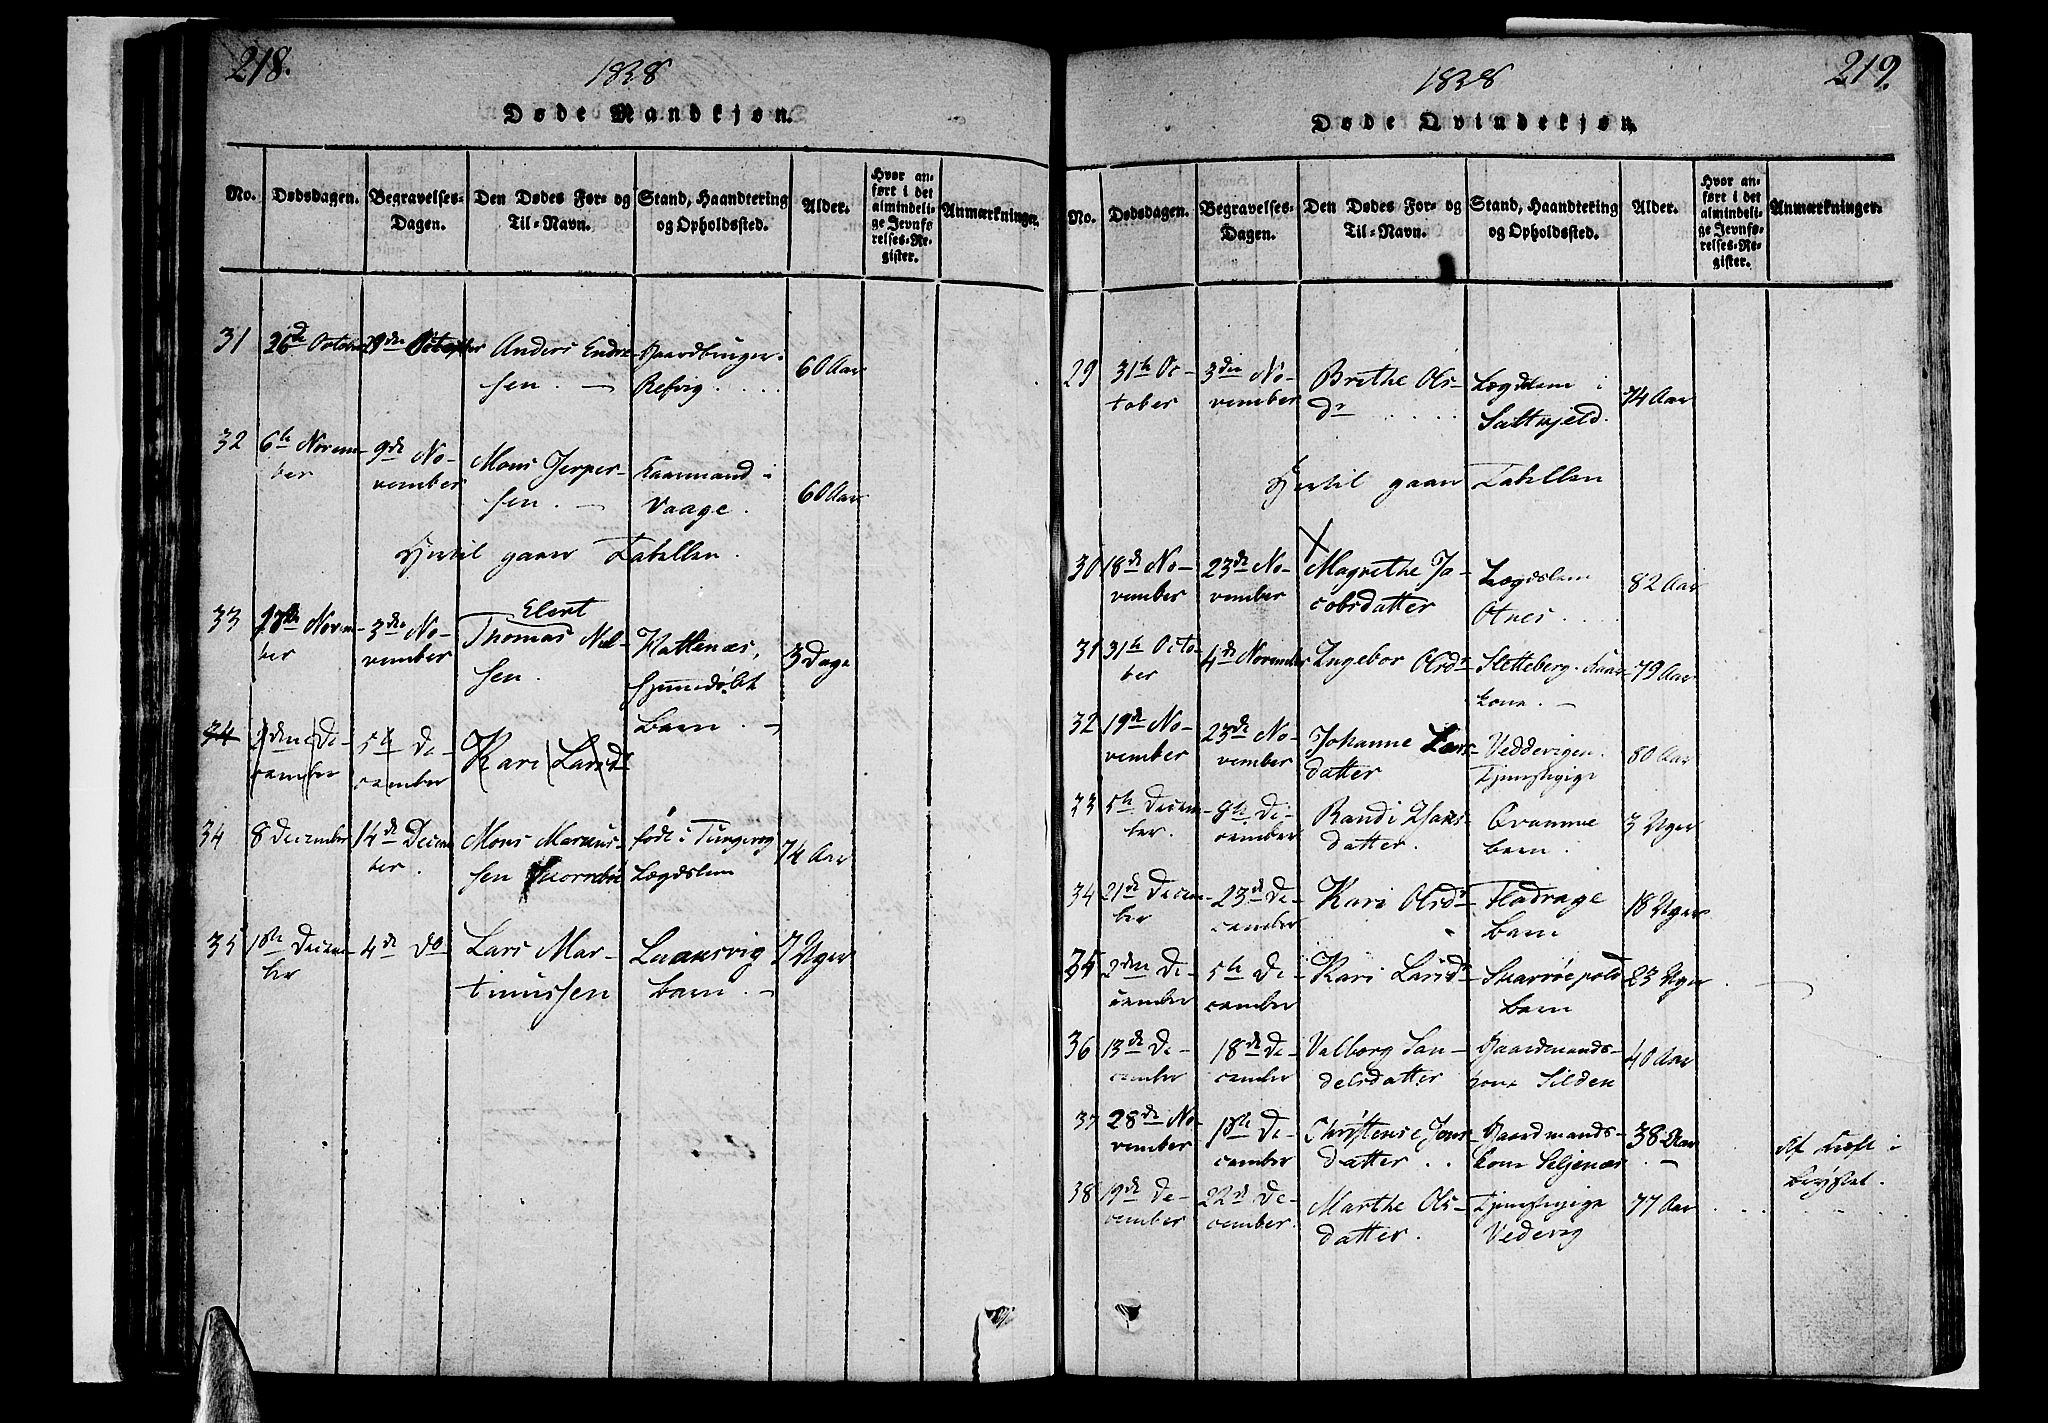 218.
1838
Døde Mandkjøn.
No.
Dødsdagen.
Begravelses-
Dagen.
Den Dødes For- og
Til-Navn.
Stand, Haandtering
og Opholdssted.
Alder.
Hvor an-
ført i det
almindeli-
ge Jevnfø-
relses-Re-
gister.
Anmærkninger.
31 26de October
Anders Endre-
sen. Gaardbruger
Refvig. 60 Aar
32 6te Novem-
ber 9de No-
vember Mons Jesper-
sen. Kaarmand i
Vaage. 60 Aar
Hertil gaaer Tabellen.
33 Novem-
ber 3die No-
vember Elert
Thomas Niel-
sen. Hattenæs,
hjemmedøbt
barn. 3 Dage
34 2den De-
cember 5te De-
cember Kari Larsdr
34 8 December 14de Decem-
ber. Mons Marcus-
sen
født i Tungevog
Lægdslem 74 Aar
35 18te Decem-
ber 4de Do Lars Mar-
tinussen
barn. 7 Uger
219.
1838
Døde Qvindekjøn.
No.
Dødsdagen.
Begravelses-
Dagen.
Den Dødes For- og
Til-Navn.
Stand, Haandtering
og Opholdssted.
Alder.
Hvor an-
ført i det
almindeli-
ge Jevnfø-
relses-Re-
gister.
Anmærkninger.
29 31te Oc-
tober 3die No-
vember Brithe Ols-
dr Lægdslem i
Saltkjeld. 74 Aar
Hertil gaaer Tabellen
30 18de No-
vember 23de No-
vember Magrethe Ja-
cobsdatter Lægdslem
Otnes 82 Aar
31 31te Octo-
ber 4de November Ingebor Olsdr Sletteberg. Kaar-
kone. 79 Aar
32 19de No-
vember 23de No-
vember Johanne Lars-
datter Veddevigen.
80 Aar
33 5te Decem-
ber. 8te De-
cember Randi Hans-
datter. Qvamme
barn. 3 Uger
34 21de Decem-
ber 23de De-
cember Kari Olsdr
barn 18 Uger
35 2den De-
cember 5te De-
cember Kari Larsdr
barn 23 Uger
36 13de De-
cember 18de De-
cember Valborg San-
delsdatter Gaardmands-
kone Silden 40 Aar
37 28de No-
vember 18te De-
cember Christense Jons-
datter Gaardmands-
kone Seljenæs 38 Aar
Af Kræft i
brystet.
38 19de De-
cember 22de De-
cember. Marthe Ols-
datter.
Vedevig 77 Aar